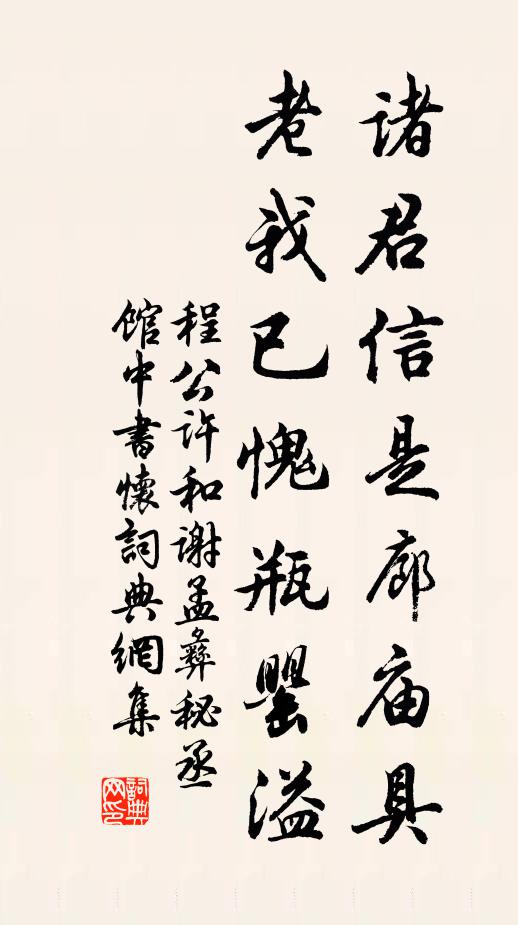 诸君信是廊庙具
老我已愧瓶罂溢
程公许和谢孟彝秘丞
馆中书怀词典网集
词典
网印